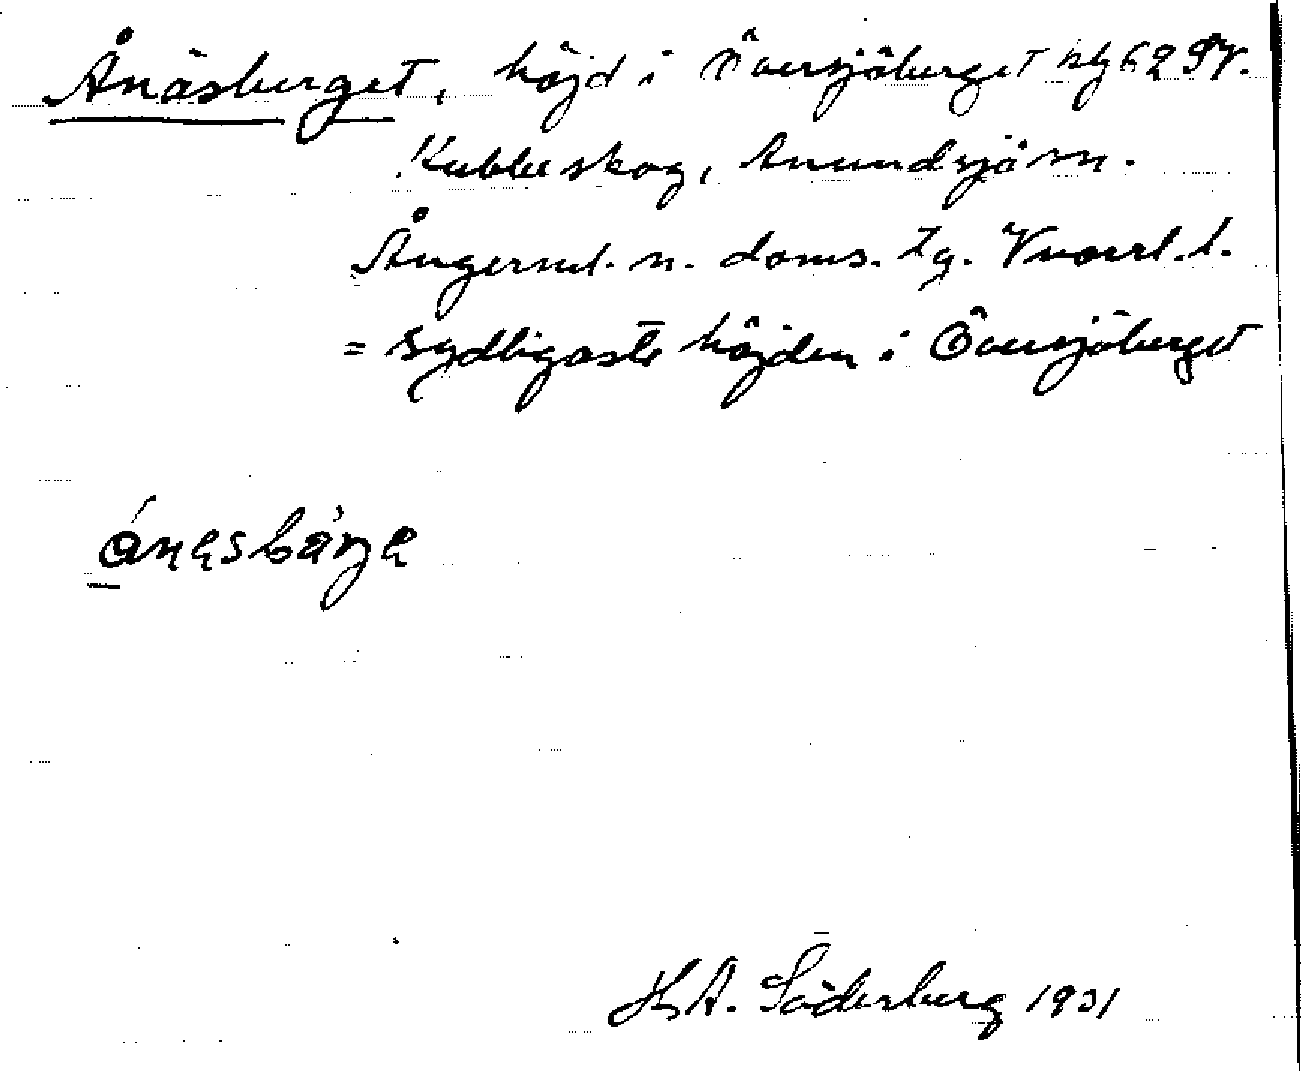 Ånäsberget, höjd i Översjöberget blg 62 SV.
Kubbeskog, Anundsjö sn.
Ångerml. n. doms. tg. Vnorrl. l.
= sydligaste höjden i Översjöberget
K A. Söderberg 1931